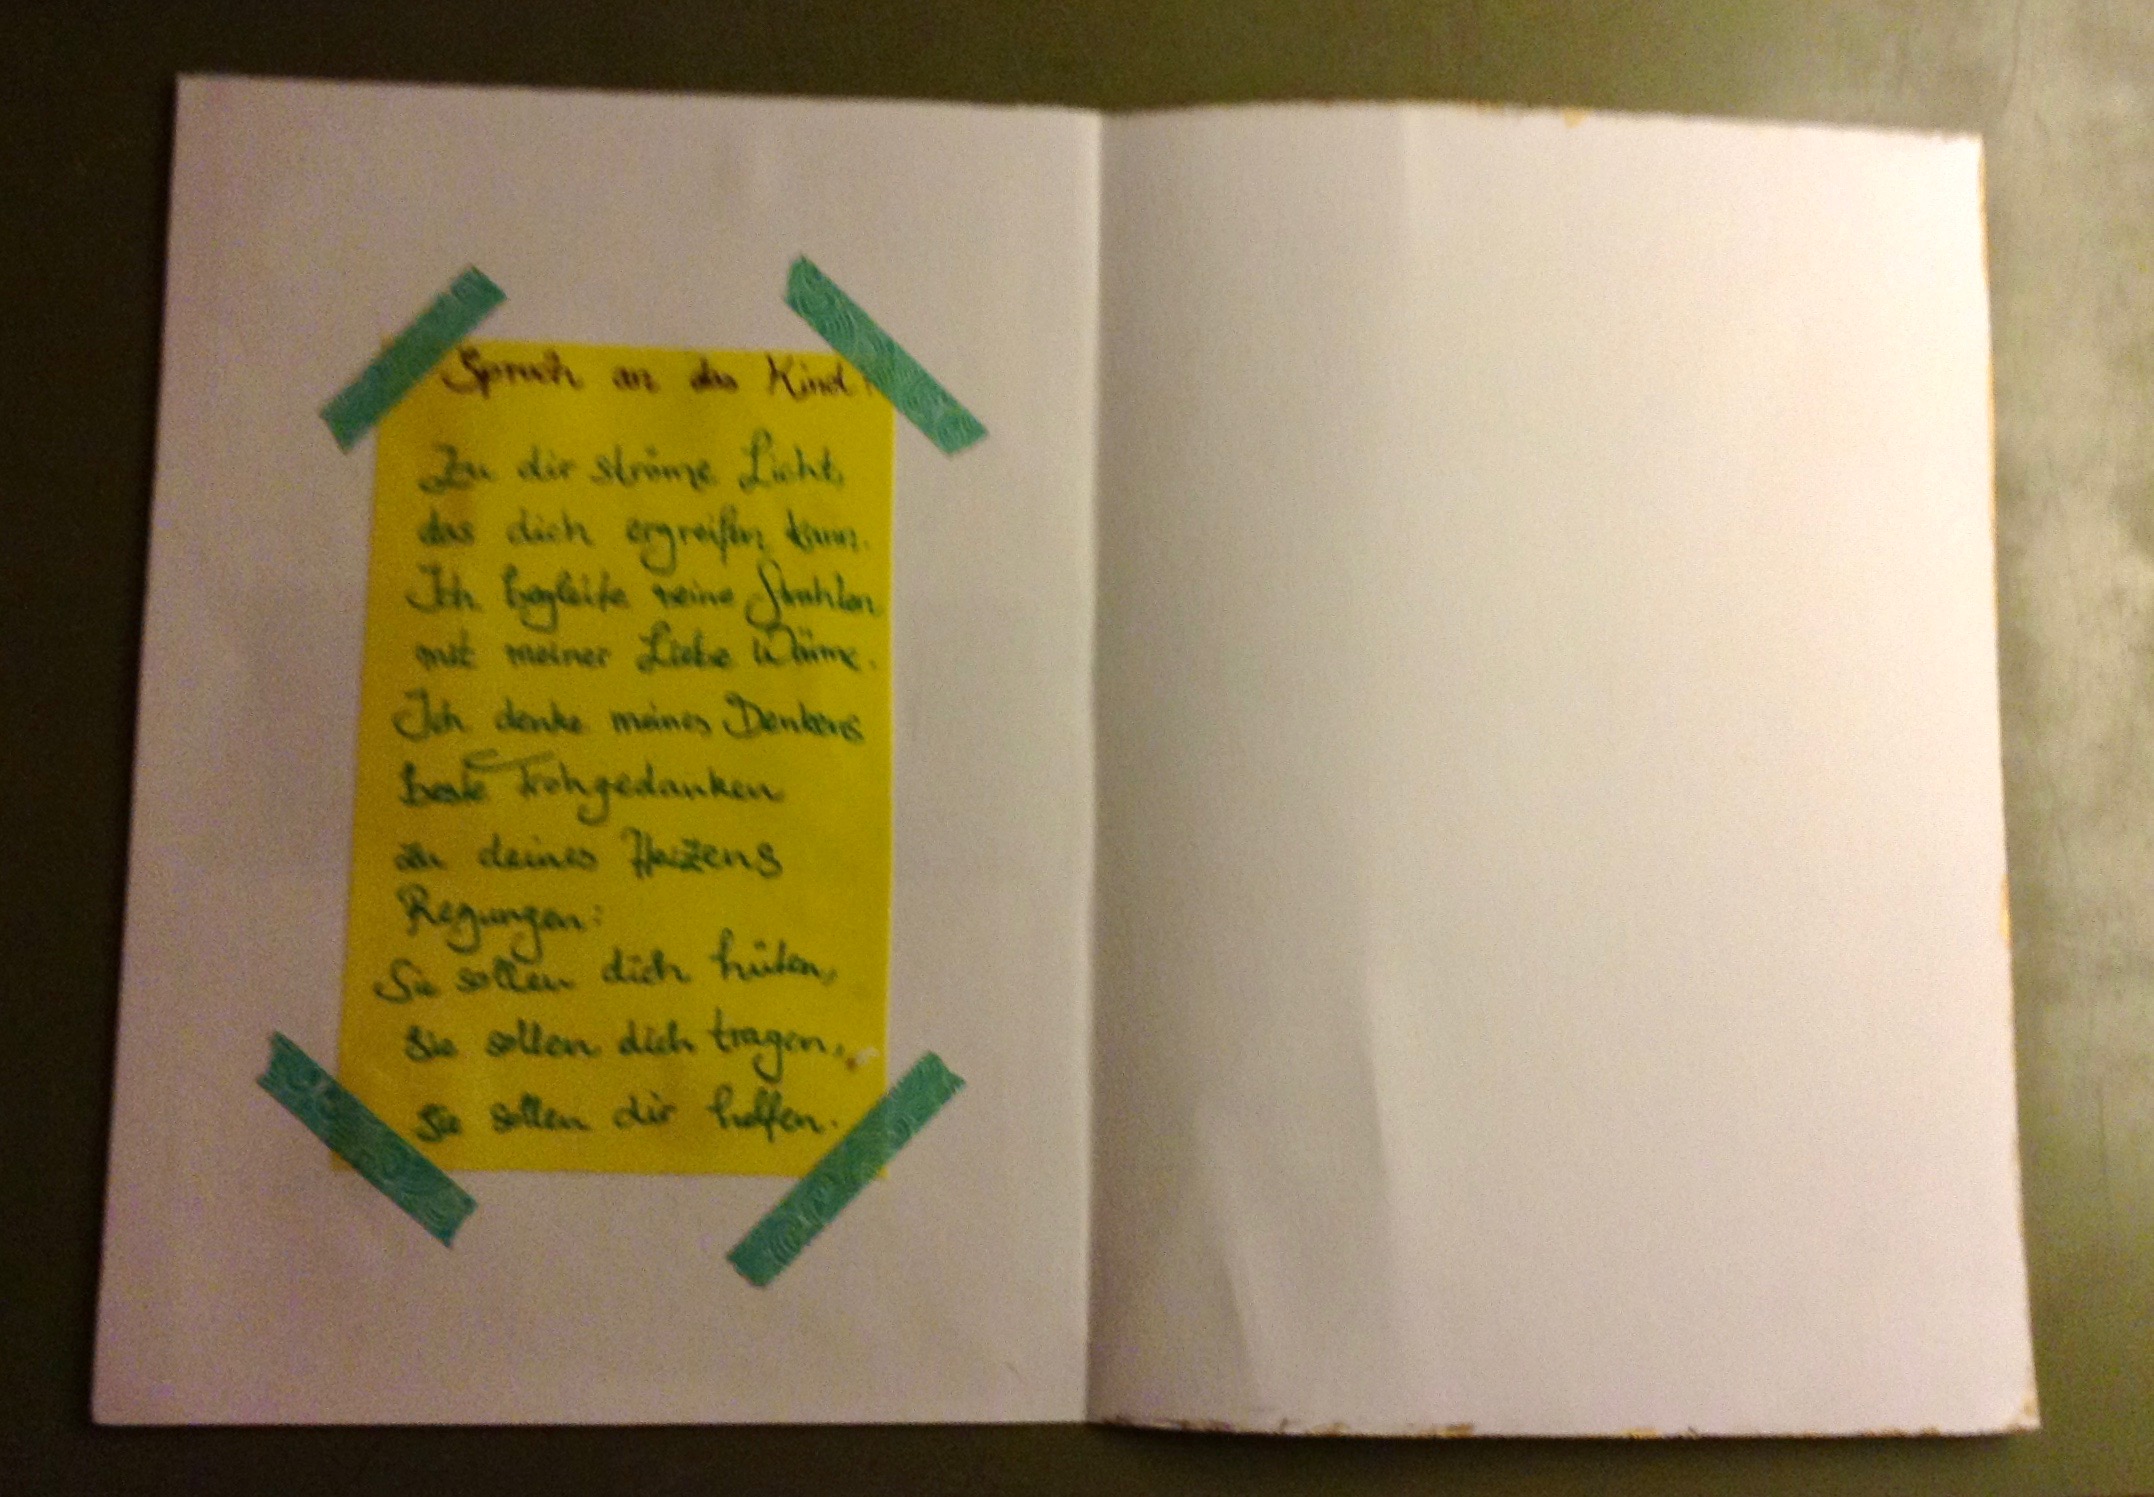 Spruch an das Kind:
Zu dir ströme Licht,
das dich ergreifen kann.
Ich begleite seine Strahlen
mit meiner Liebe Wärme.
Ich denke meines Denkens
beste Frohgedanken
zu deines Herzens
Regungen:
Sie sollen dich hüten,
sie sollen dich tragen,
sie sollen dir helfen.